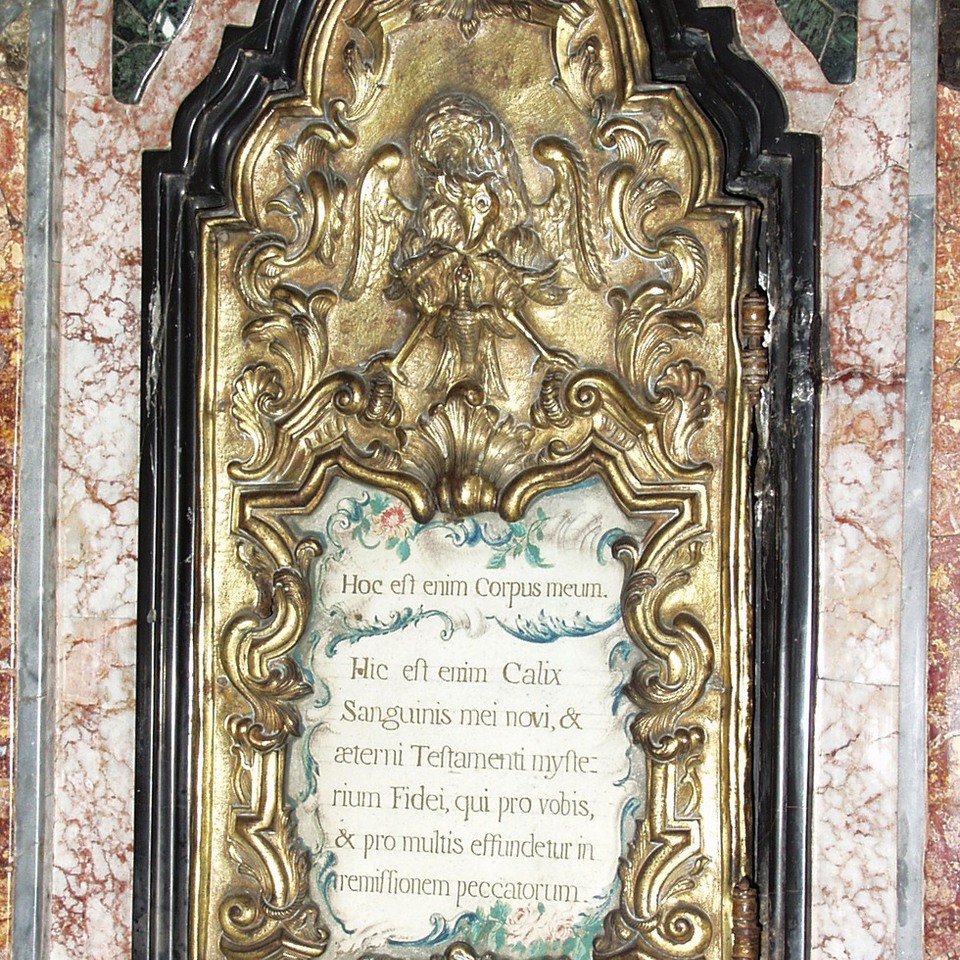 Hoc eſt enim Corpus meum.
Hic eſt enim Calix
Sanguinis mei novi, &
æterni Teſtamenti myſte-
rium Fidei, qui pro vobis,
& pro multis effundetur in
remiſſionem peccatorum.